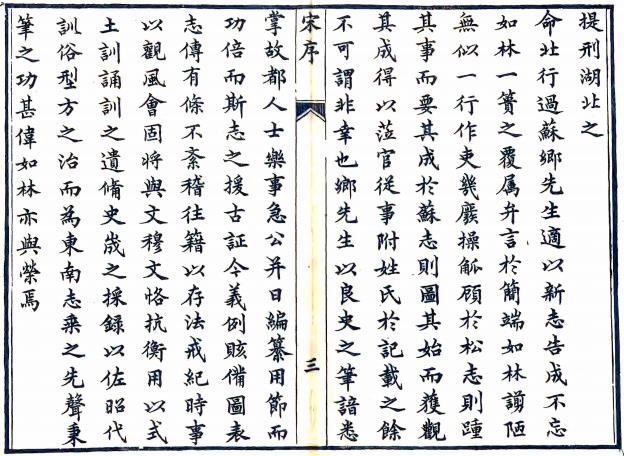 提刑湖北之
命北行過蘇鄉先生適以新志告成不忘
如林一簣之覆属弁言於簡端如林謭陋
無似一行作吏幾廢操觚顧於松志則踵
其事而要其成於蘇志則圖其始而獲觀
其成得以蒞官從事附姓氏於記載之餘
不可謂非幸也鄉先生以良史之筆諳悉
宋序
三
掌故都人士樂事急公并日編纂用節而
功倍而斯志之援古証今義例賅備圖表
志傳有條不紊稽往籍以存法戒紀時事
以觀風會固將與文穆文恪抗衡用以式
土訓誦訓之遺脩史歲之採録以佐昭代
訓俗型方之治而為東南志乘之先聲秉
筆之功甚偉如林亦與榮焉